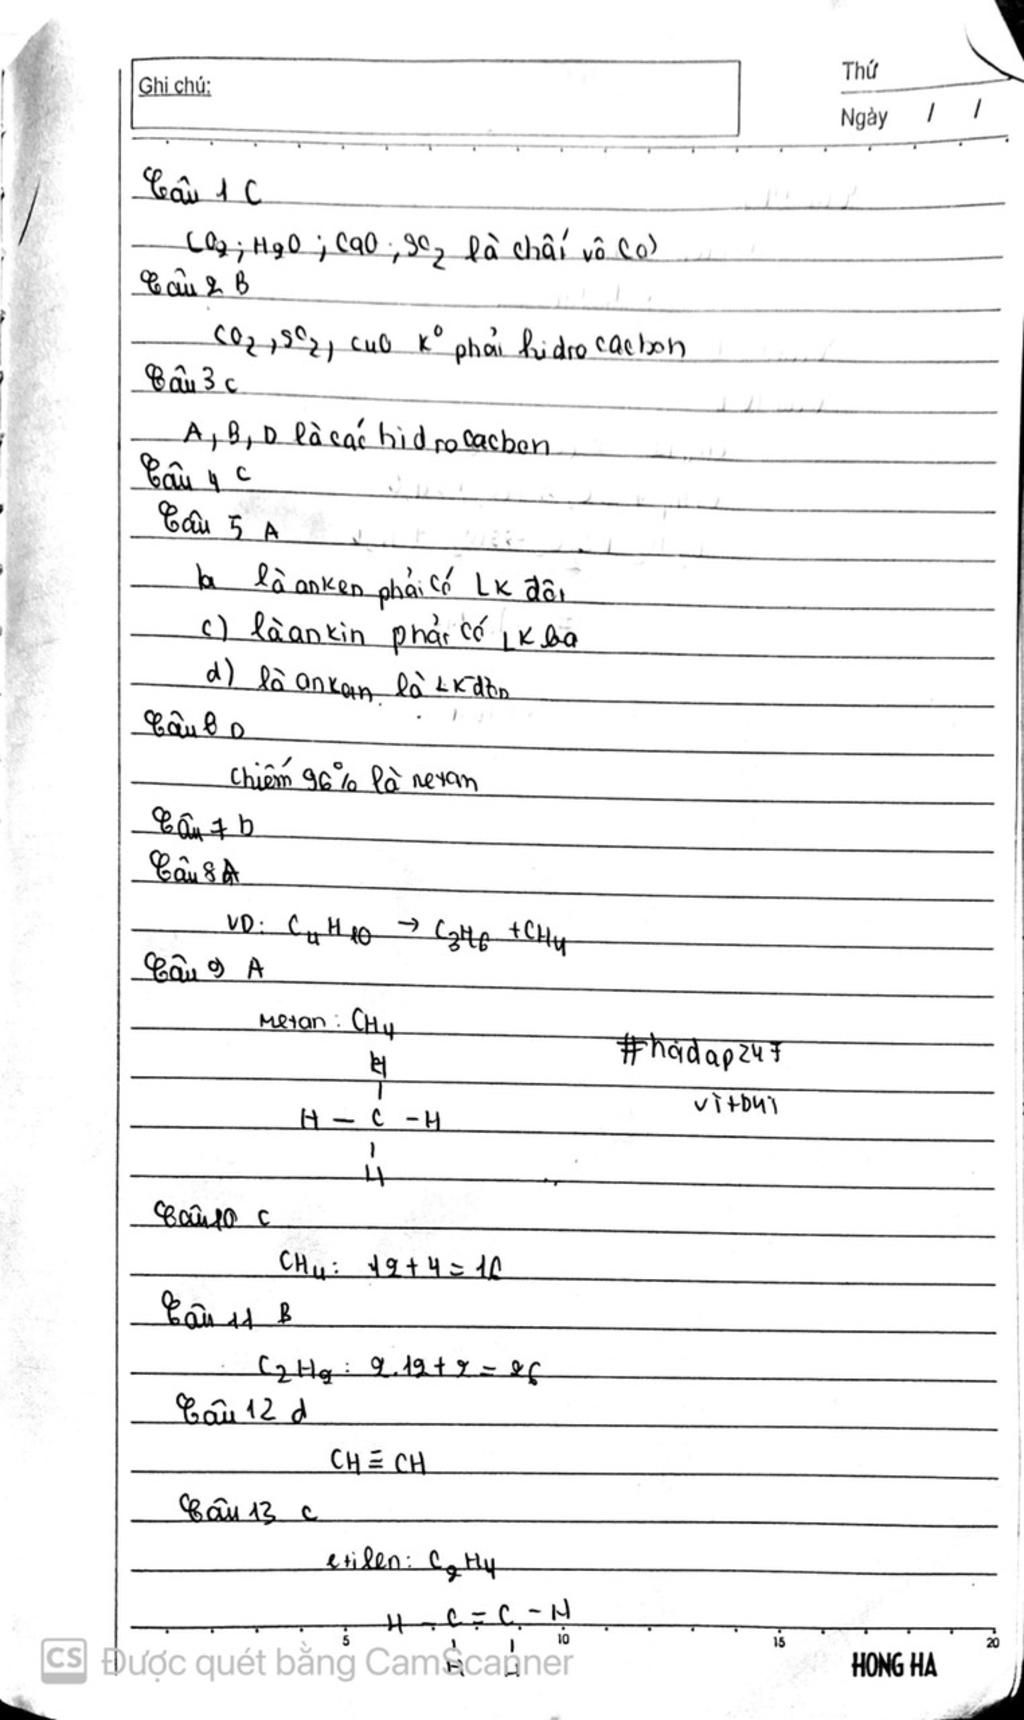 Ghi chú:
Thứ
Ngày / /
Câu 1 C
CO2; HgO; CaO; SO2 là chất vô cơ
Câu 2 B
CO2, SO2, CuO K° phải hidrocacbon
Câu 3 c
A, B, D là các hidrocacbon
Câu 4 C
Câu 5 A
b là anken phải có LK đôi
c) là ankin phải có LK ba
d) là ankan là LK đơn
Câu 6 D
chiếm 96% là metan
Câu 7 b
Câu 8 A
VD: C4H10 → C3H6 + CH4
Câu 9 A
metan: CH4
#hoidap247
H
vitbui
H – C – H
H
Câu 10 C
CH4: 12+4=16
Câu 11 B
C2H2: 2.12+2=26
Câu 12 d
CH≡CH
Câu 13 c
etilen: C2H4
H – C = C – H
5 10 15 20
H H
CS Được quét bằng CamScanner
HONG HA